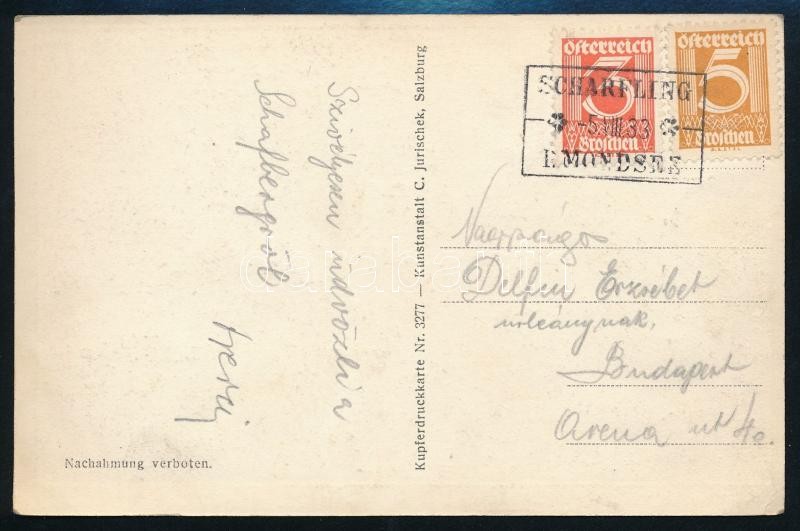 Szivélyesen üdvözli a
Schafbergről
Kupferdruckkarte Nr. 3277 — Kunstanstalt C. Jurischek, Salzburg
Nachahmung verboten.
Österreich
3
Groschen
Österreich
5
Groschen
SCHARFLING
-5.VIII.33
MONDSEE
Nagyságos
Delfin Erzsébet
úrleánynak,
Budapest
Arena út
darabanth